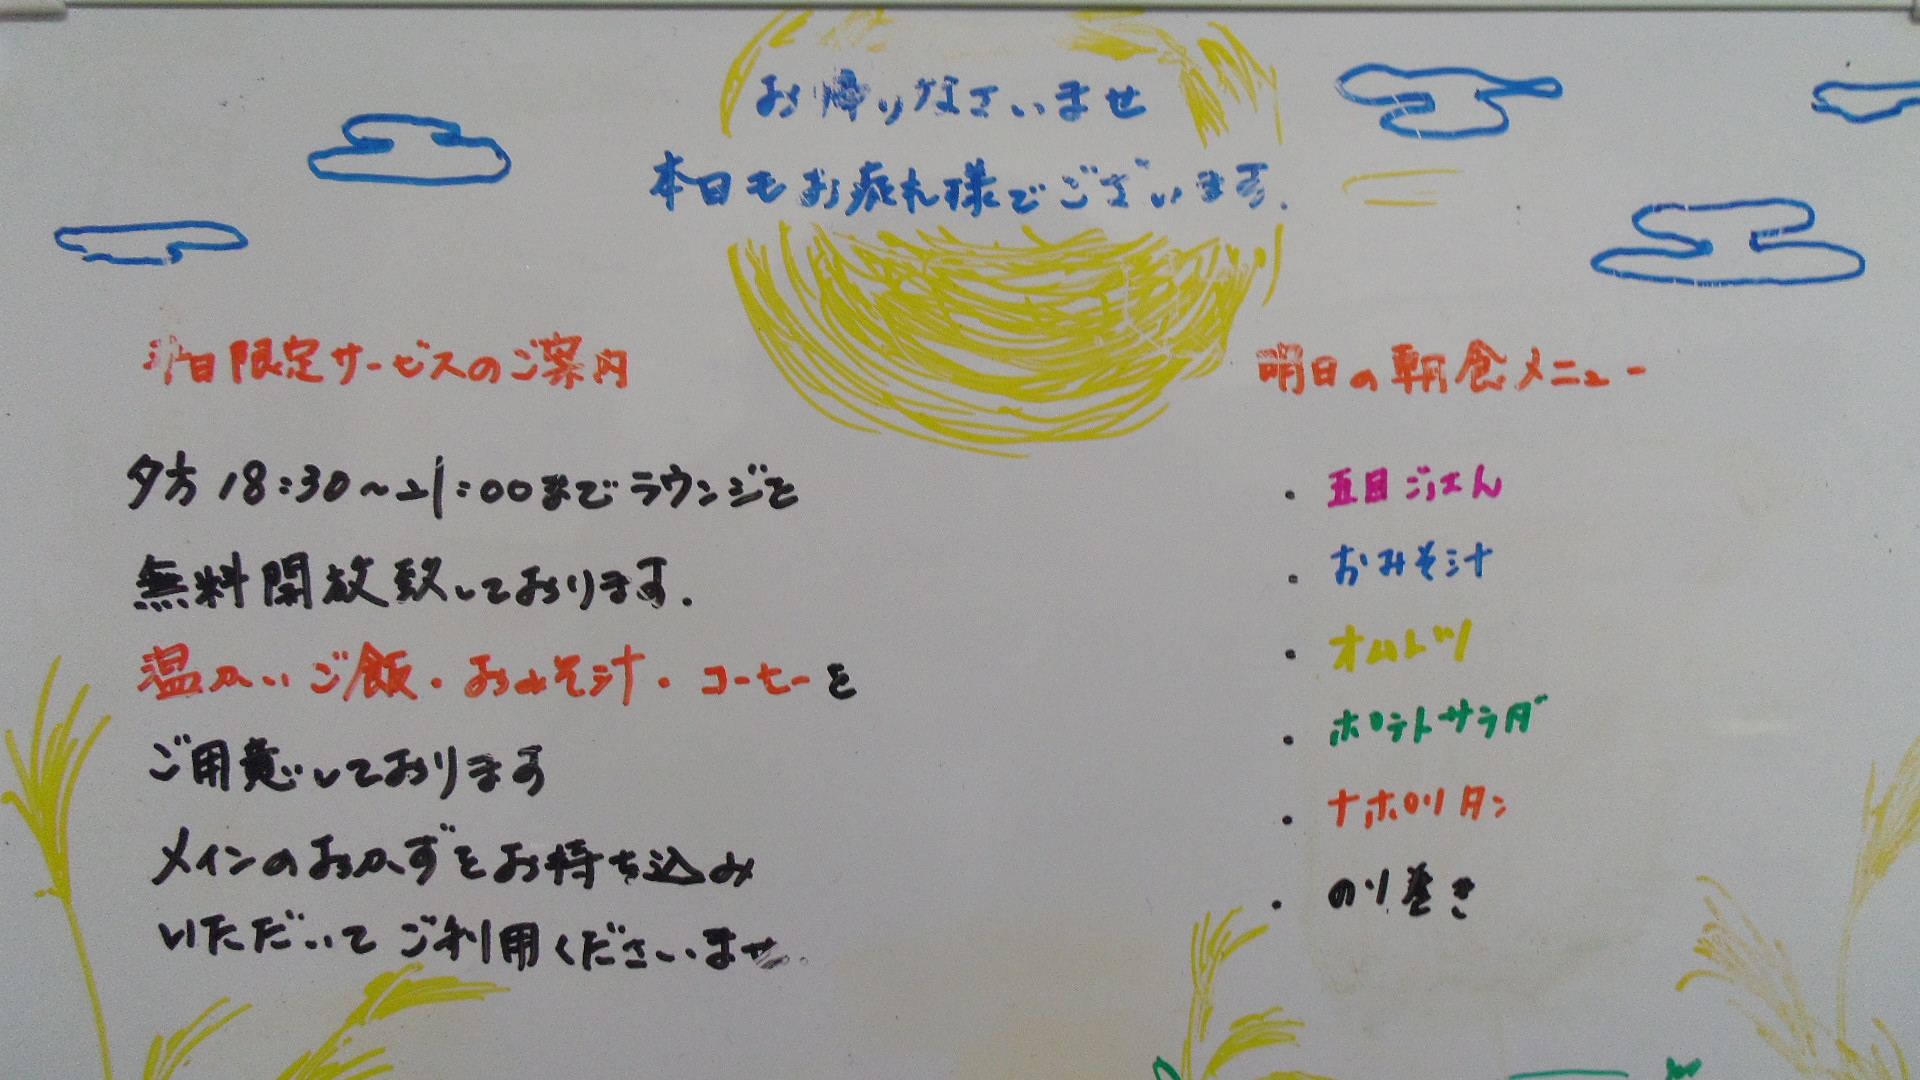 お帰りなさいませ
本日もお疲れ様でございます.
平日限定サービスのご案内
夕方 18:30~21:00までラウンジを
無料開放致しております.
温かいご飯・おみそ汁・コーヒーを
ご用意しております
メインのおかずをお持ち込み
いただいてご利用くださいませ.
明日の朝食メニュー
・五目ごはん
・おみそ汁
・オムレツ
・ポテトサラダ
・ナポリタン
・のり巻き